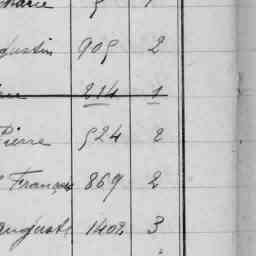 Marie 5 1
gustin 905 2
214 1
Pierre 524 2
François 869 2
auguste 1402 3